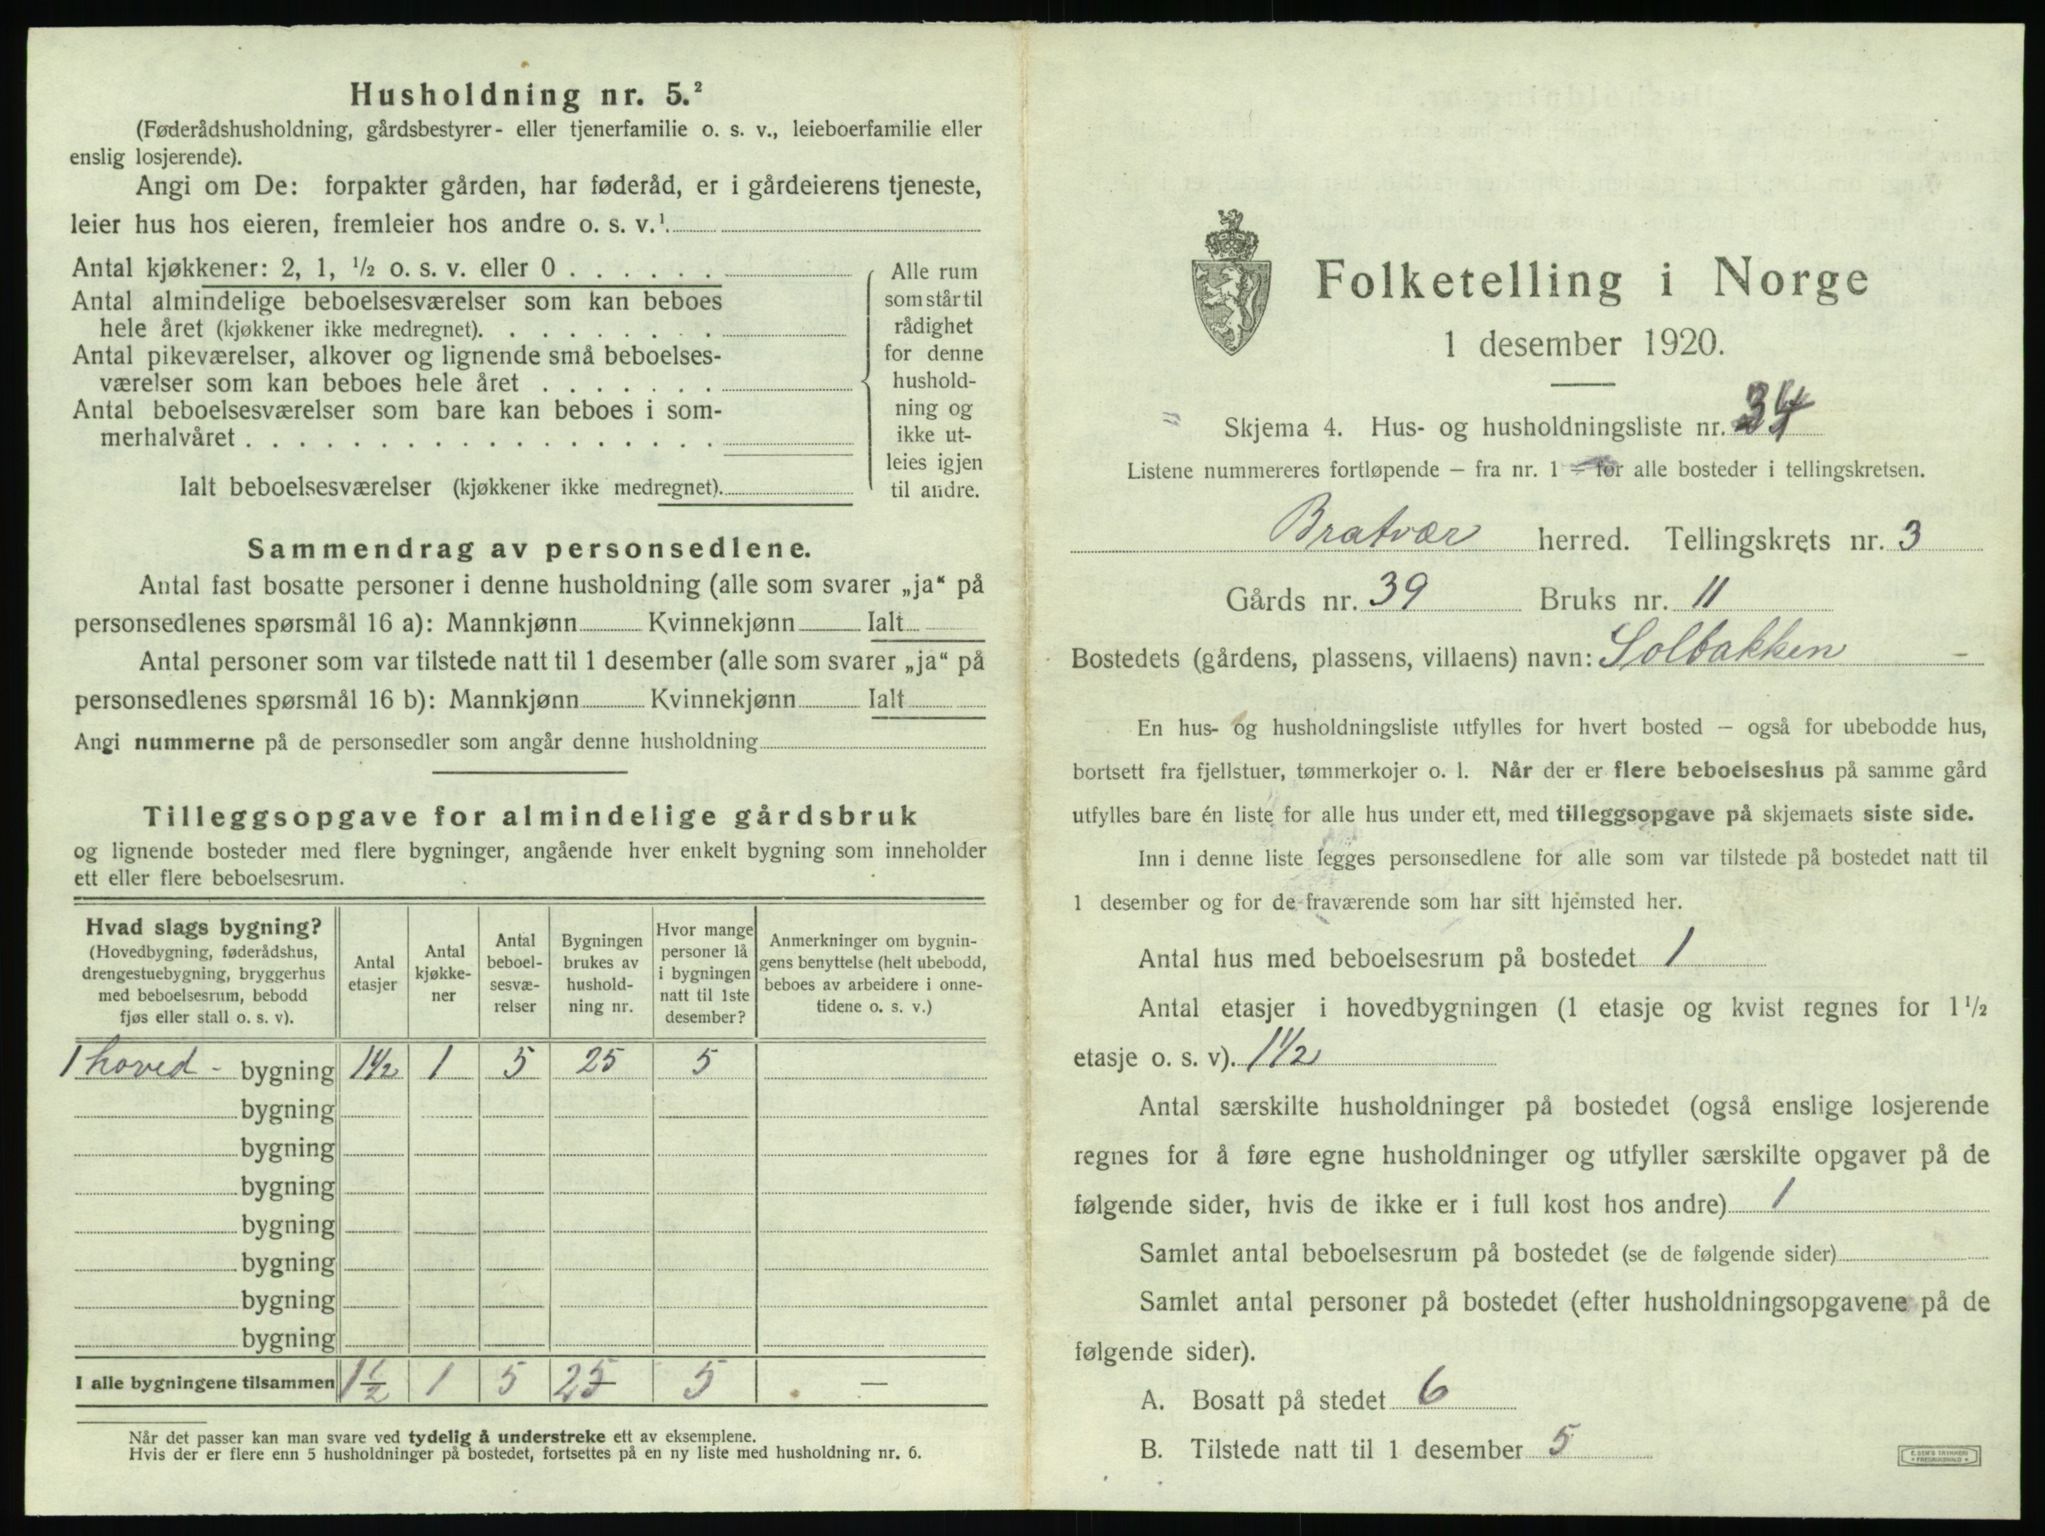 Husholdning nr. 5.²
(Føderådshusholdning, gårdsbestyrer- eller tjenerfamilie o. s. v., leieboerfamilie eller
enslig losjerende).
Angi om De: forpakter gården, har føderåd, er i gårdeierens tjeneste,
leier hus hos eieren, fremleier hos andre o. s. v.¹
Antal kjøkkener: 2, 1, ½ o. s. v. eller 0 . . . . . .
Antal almindelige beboelsesværelser som kan beboes
hele året (kjøkkener ikke medregnet). . . . . . . . .
Antal pikeværelser, alkover og lignende små beboelses-
værelser som kan beboes hele året . . . . . . .
Antal beboelsesværelser som bare kan beboes i som-
merhalvåret . . . . . . . . . . . . . . . . . .
Ialt beboelsesværelser (kjøkkener ikke medregnet).
Alle rum
som står til
rådighet
for denne
hushold-
ning og
ikke ut-
leies igjen
til andre.
Sammendrag av personsedlene.
Antal fast bosatte personer i denne husholdning (alle som svarer „ja“ på
personsedlenes spørsmål 16 a): Mannkjønn Kvinnekjønn Ialt
Antal personer som var tilstede natt til 1 desember (alle som svarer „ja“ på
personsedlenes spørsmål 16 b): Mannkjønn Kvinnekjønn Ialt
Angi nummerne på de personsedler som angår denne husholdning
Tilleggsopgave for almindelige gårdsbruk
og lignende bosteder med flere bygninger, angående hver enkelt bygning som inneholder
ett eller flere beboelsesrum.
Hvad slags bygning?
(Hovedbygning, føderådshus,
drengestuebygning, bryggerhus
med beboelsesrum, bebodd
fjøs eller stall o. s. v).
Antal
etasjer
Antal
kjøkke-
ner
Antal
beboel-
sesvæ-
relser
Bygningen
brukes av
hushold-
ning nr.
Hvor mange
personer lå
i bygningen
natt til 1ste
desember?
Anmerkninger om bygnin-
gens benyttelse (helt ubebodd,
beboes av arbeidere i onne-
tidene o. s. v.)
1 hoved - bygning 1½ 1 5 25 5
bygning
bygning
bygning
bygning
bygning
bygning
bygning
I alle bygningene tilsammen 1½ 1 5 25 5 . —
Når det passer kan man svare ved tydelig å understreke ett av eksemplene.
Hvis der er flere enn 5 husholdninger på bostedet, fortsettes på en ny liste med husholdning nr. 6.
Folketelling i Norge
1 desember 1920.
Skjema 4. Hus- og husholdningsliste nr. 34
Listene nummereres fortløpende – fra nr. 1 – for alle bosteder i tellingskretsen.
Bratvær herred. Tellingskrets nr. 3
Gårds nr. 39 Bruks nr. 11
Bostedets (gårdens, plassens, villaens) navn: Solbakken –
En hus- og husholdningsliste utfylles for hvert bosted – også for ubebodde hus,
bortsett fra fjellstuer, tømmerkojer o. l. Når der er flere beboelseshus på samme gård
utfylles bare én liste for alle hus under ett, med tilleggsopgave på skjemaets siste side.
Inn i denne liste legges personsedlene for alle som var tilstede på bostedet natt til
1 desember og for de fraværende som har sitt hjemsted her.
Antal hus med beboelsesrum på bostedet 1
Antal etasjer i hovedbygningen (1 etasje og kvist regnes for 1½
etasje o. s. v). 1½
Antal særskilte husholdninger på bostedet (også enslige losjerende
regnes for å føre egne husholdninger og utfyller særskilte opgaver på de
følgende sider, hvis de ikke er i full kost hos andre) 1
Samlet antal beboelsesrum på bostedet (se de følgende sider)
Samlet antal personer på bostedet (efter husholdningsopgavene på de
følgende sider).
A. Bosatt på stedet 6
B. Tilstede natt til 1 desember 5
E. SEM'S TRYKKERI
FREDRIKSHALD